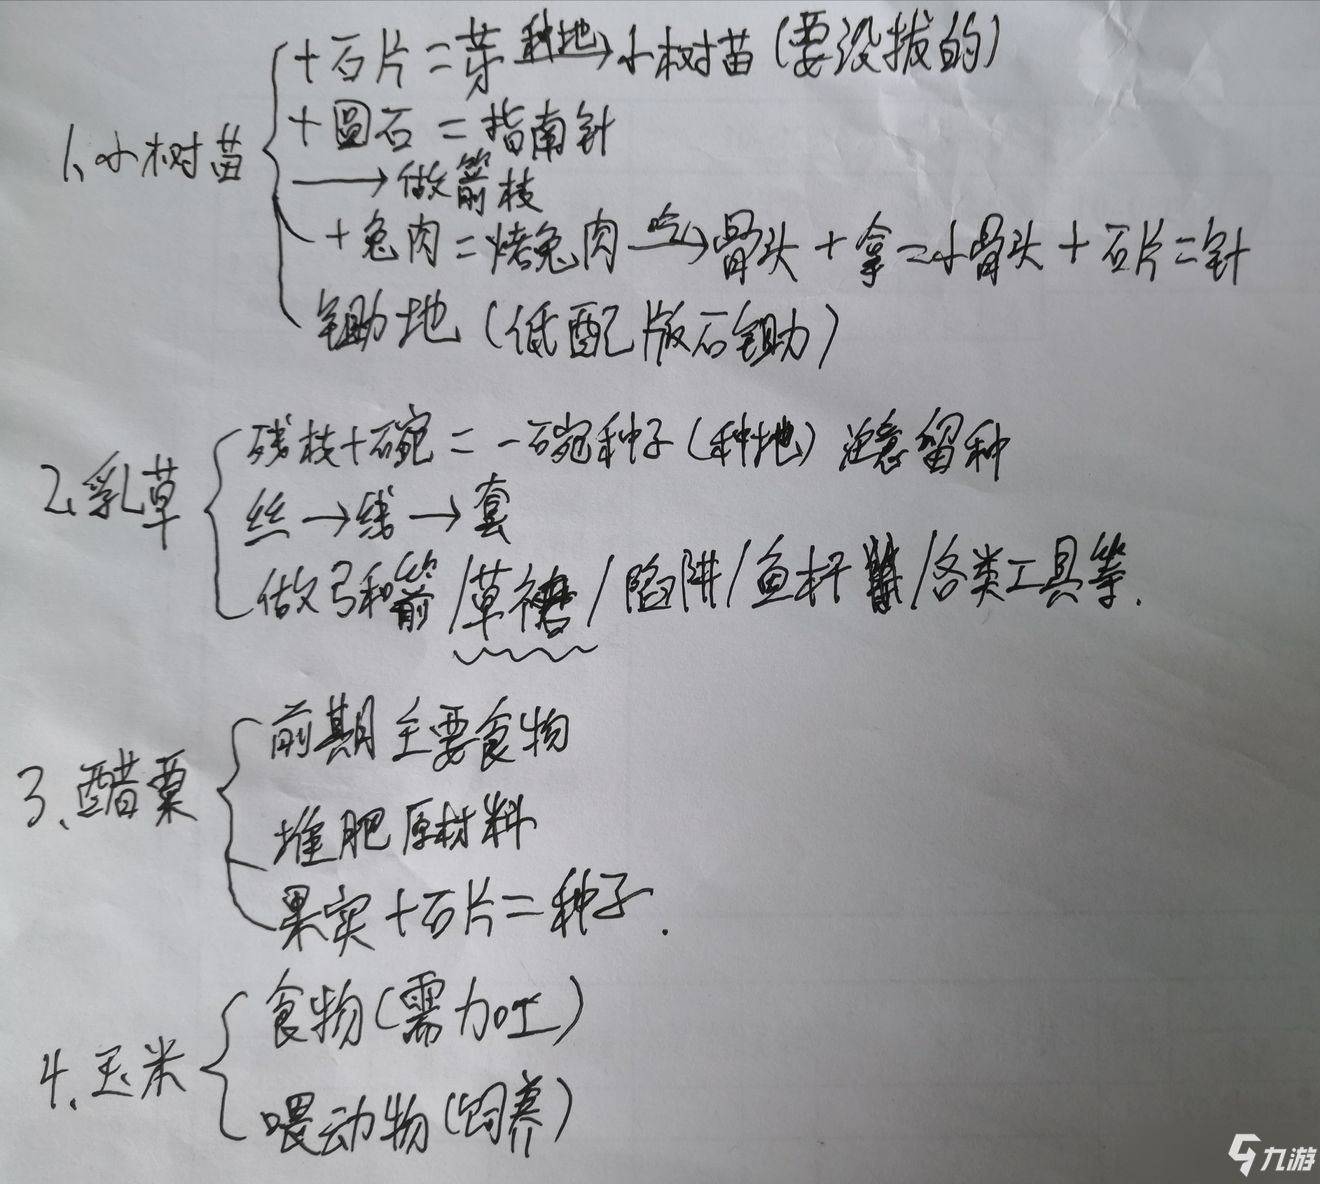 1、小树苗
+石片=芽 种地→小树苗(要没拔的)
+圆石=指南针
→做箭枝
+兔肉=烤兔肉 吃→骨头+拿=小骨头+石片=针
锄地(低配版石锄)
2、乳草
残枝+碗=一碗种子(种地) 注意留种
丝→线→套
做弓和箭/草裙/陷阱/鱼杆/各类工具等.
3、醋栗
前期主要食物
堆肥原材料
果实+石片=种子.
4、玉米
食物(需加工)
喂动物(饲养)
九游